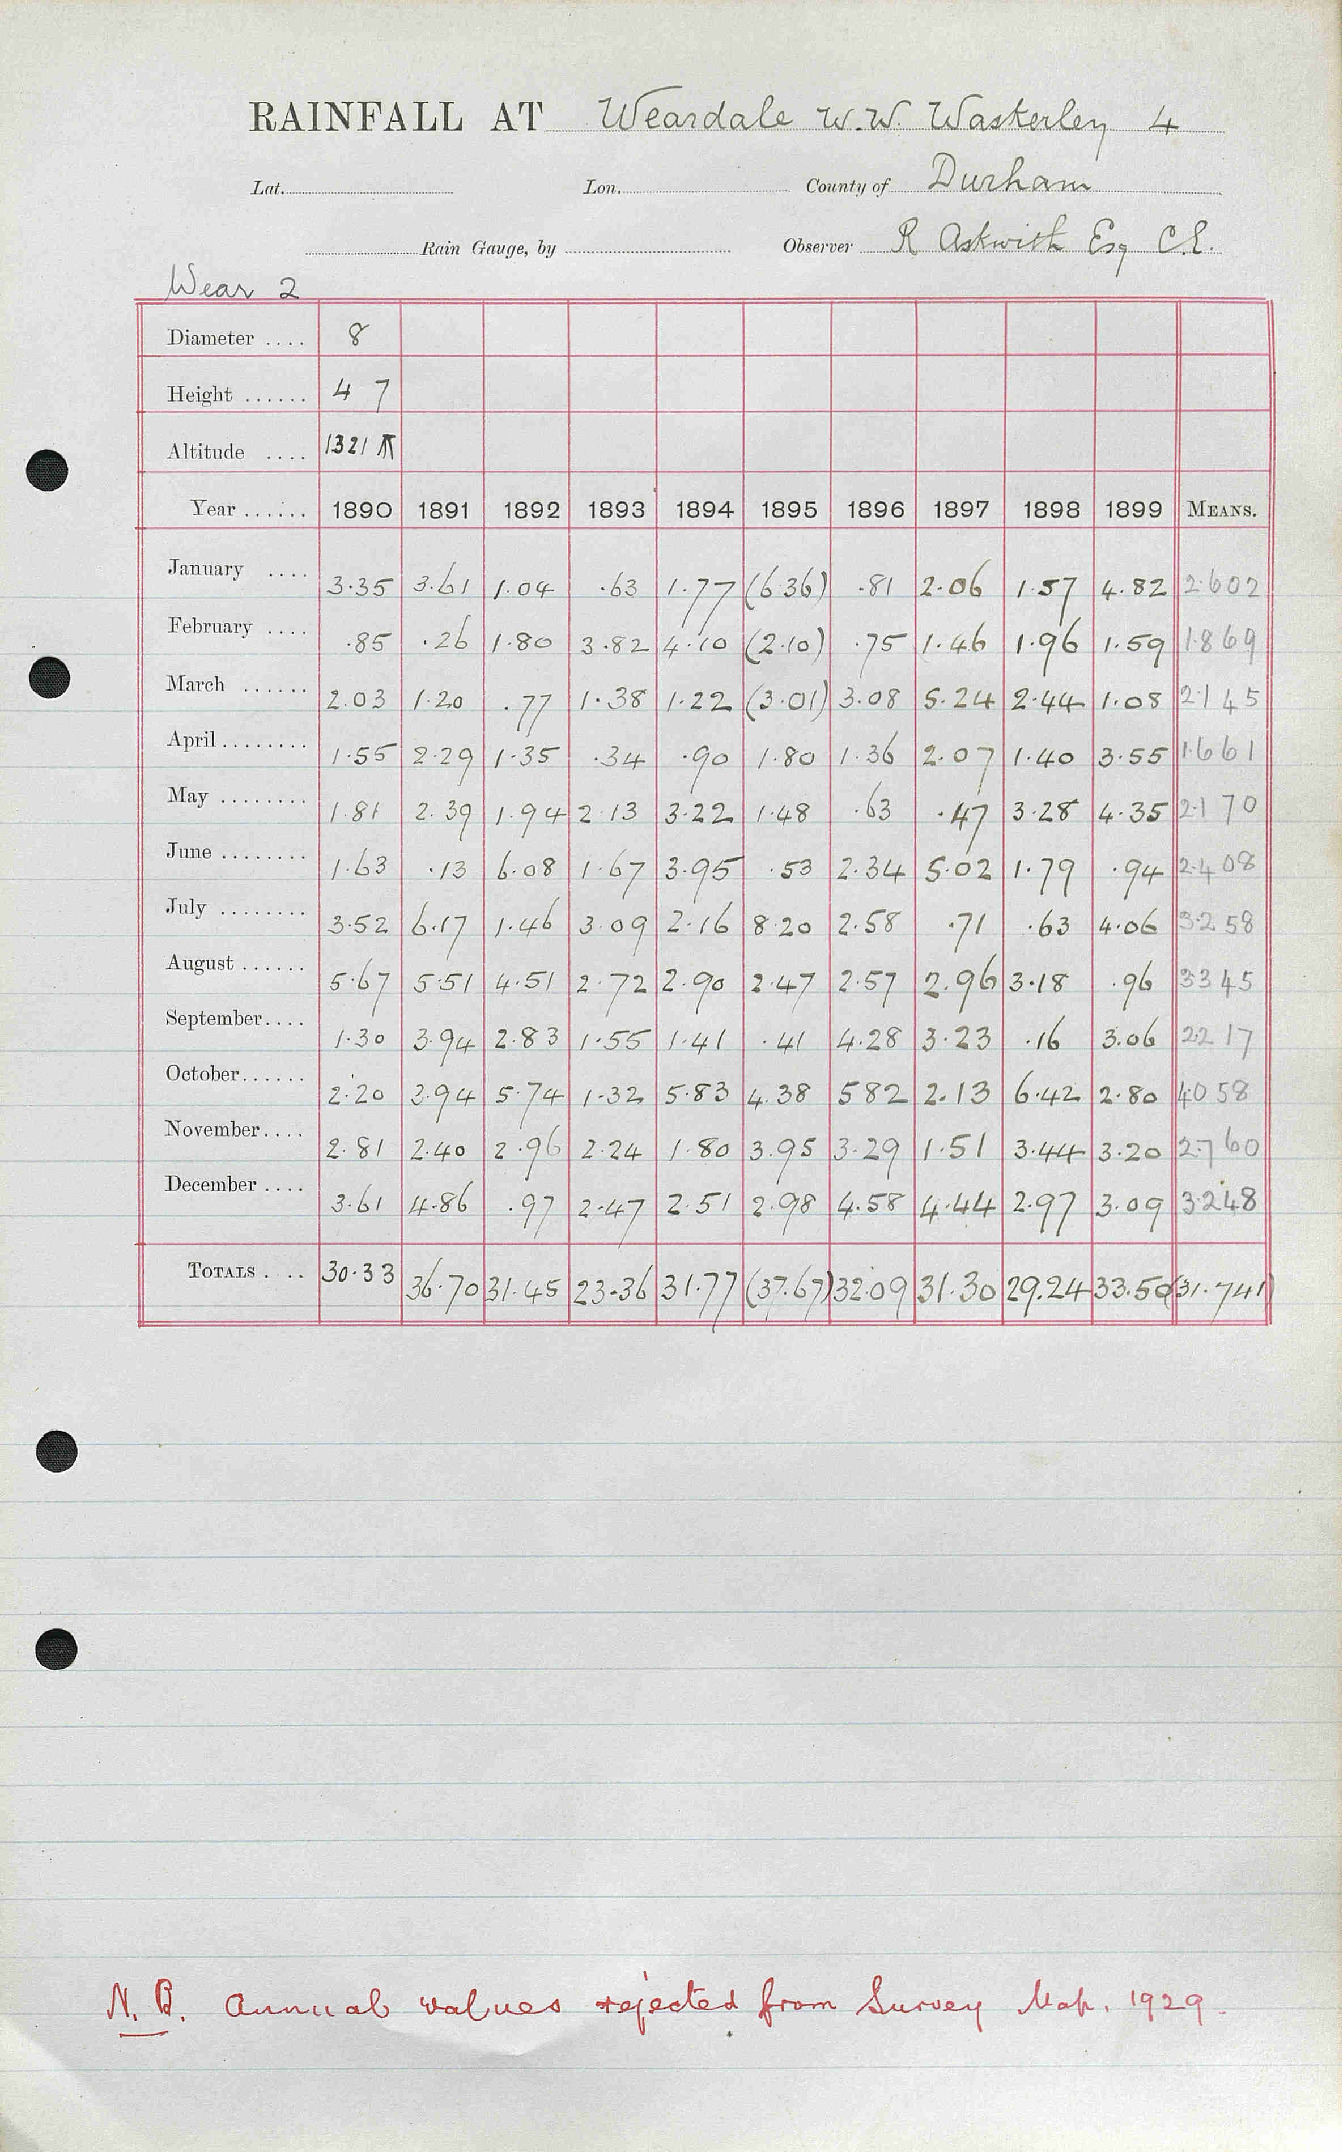 RAINFALL AT Weardale W.W. Waskerley 4
Lat. Lon. County of Durham
Rain Gauge, by Observer R Askwith Esq C.E.
Wear 2
Diameter .... 8
Height ...... 4 7
Altitude .... 1321
Year ...... 1890 1891 1892 1893 1894 1895 1896 1897 1898 1899 MEANS.
January .... 3.35 3.61 1.04 .63 1.77 (6.36) .81 2.06 1.57 4.82 2.602
February .... .85 .26 1.80 3.82 4.10 (2.10) .75 1.46 1.96 1.59 1.869
March ...... 2.03 1.20 .77 1.38 1.22 (3.01) 3.08 5.24 2.44 1.08 2.145
April ........ 1.55 2.29 1.35 .34 .90 1.80 1.36 2.07 1.40 3.55 1.661
May ........ 1.81 2.39 1.94 2.13 3.22 1.48 .63 .47 3.28 4.35 2.170
June ........ 1.63 .13 6.08 1.67 3.95 .53 2.34 5.02 1.79 .94 2.408
July ........ 3.52 6.17 1.46 3.09 2.16 8.20 2.58 .71 .63 4.06 3.258
August ...... 5.67 5.51 4.51 2.72 2.90 2.47 2.57 2.96 3.18 .96 3345
September.... 1.30 3.94 2.83 1.55 1.41 .41 4.28 3.23 .16 3.06 2217
October...... 2.20 3.94 5.74 1.32 5.83 4.38 582 2.13 6.42 2.80 4058
November.... 2.81 2.40 2.96 2.24 1.80 3.95 3.29 1.51 3.44 3.20 2.760
December .... 3.61 4.86 .97 2.47 2.51 2.98 4.58 4.44 2.97 3.09 3.248
TOTALS .... 30.33 36.70 31.45 23.36 31.77 (37.67) 32.09 31.30 29.24 33.50 (31.741)
N.B. Annual values rejected from Survey Map. 1929.